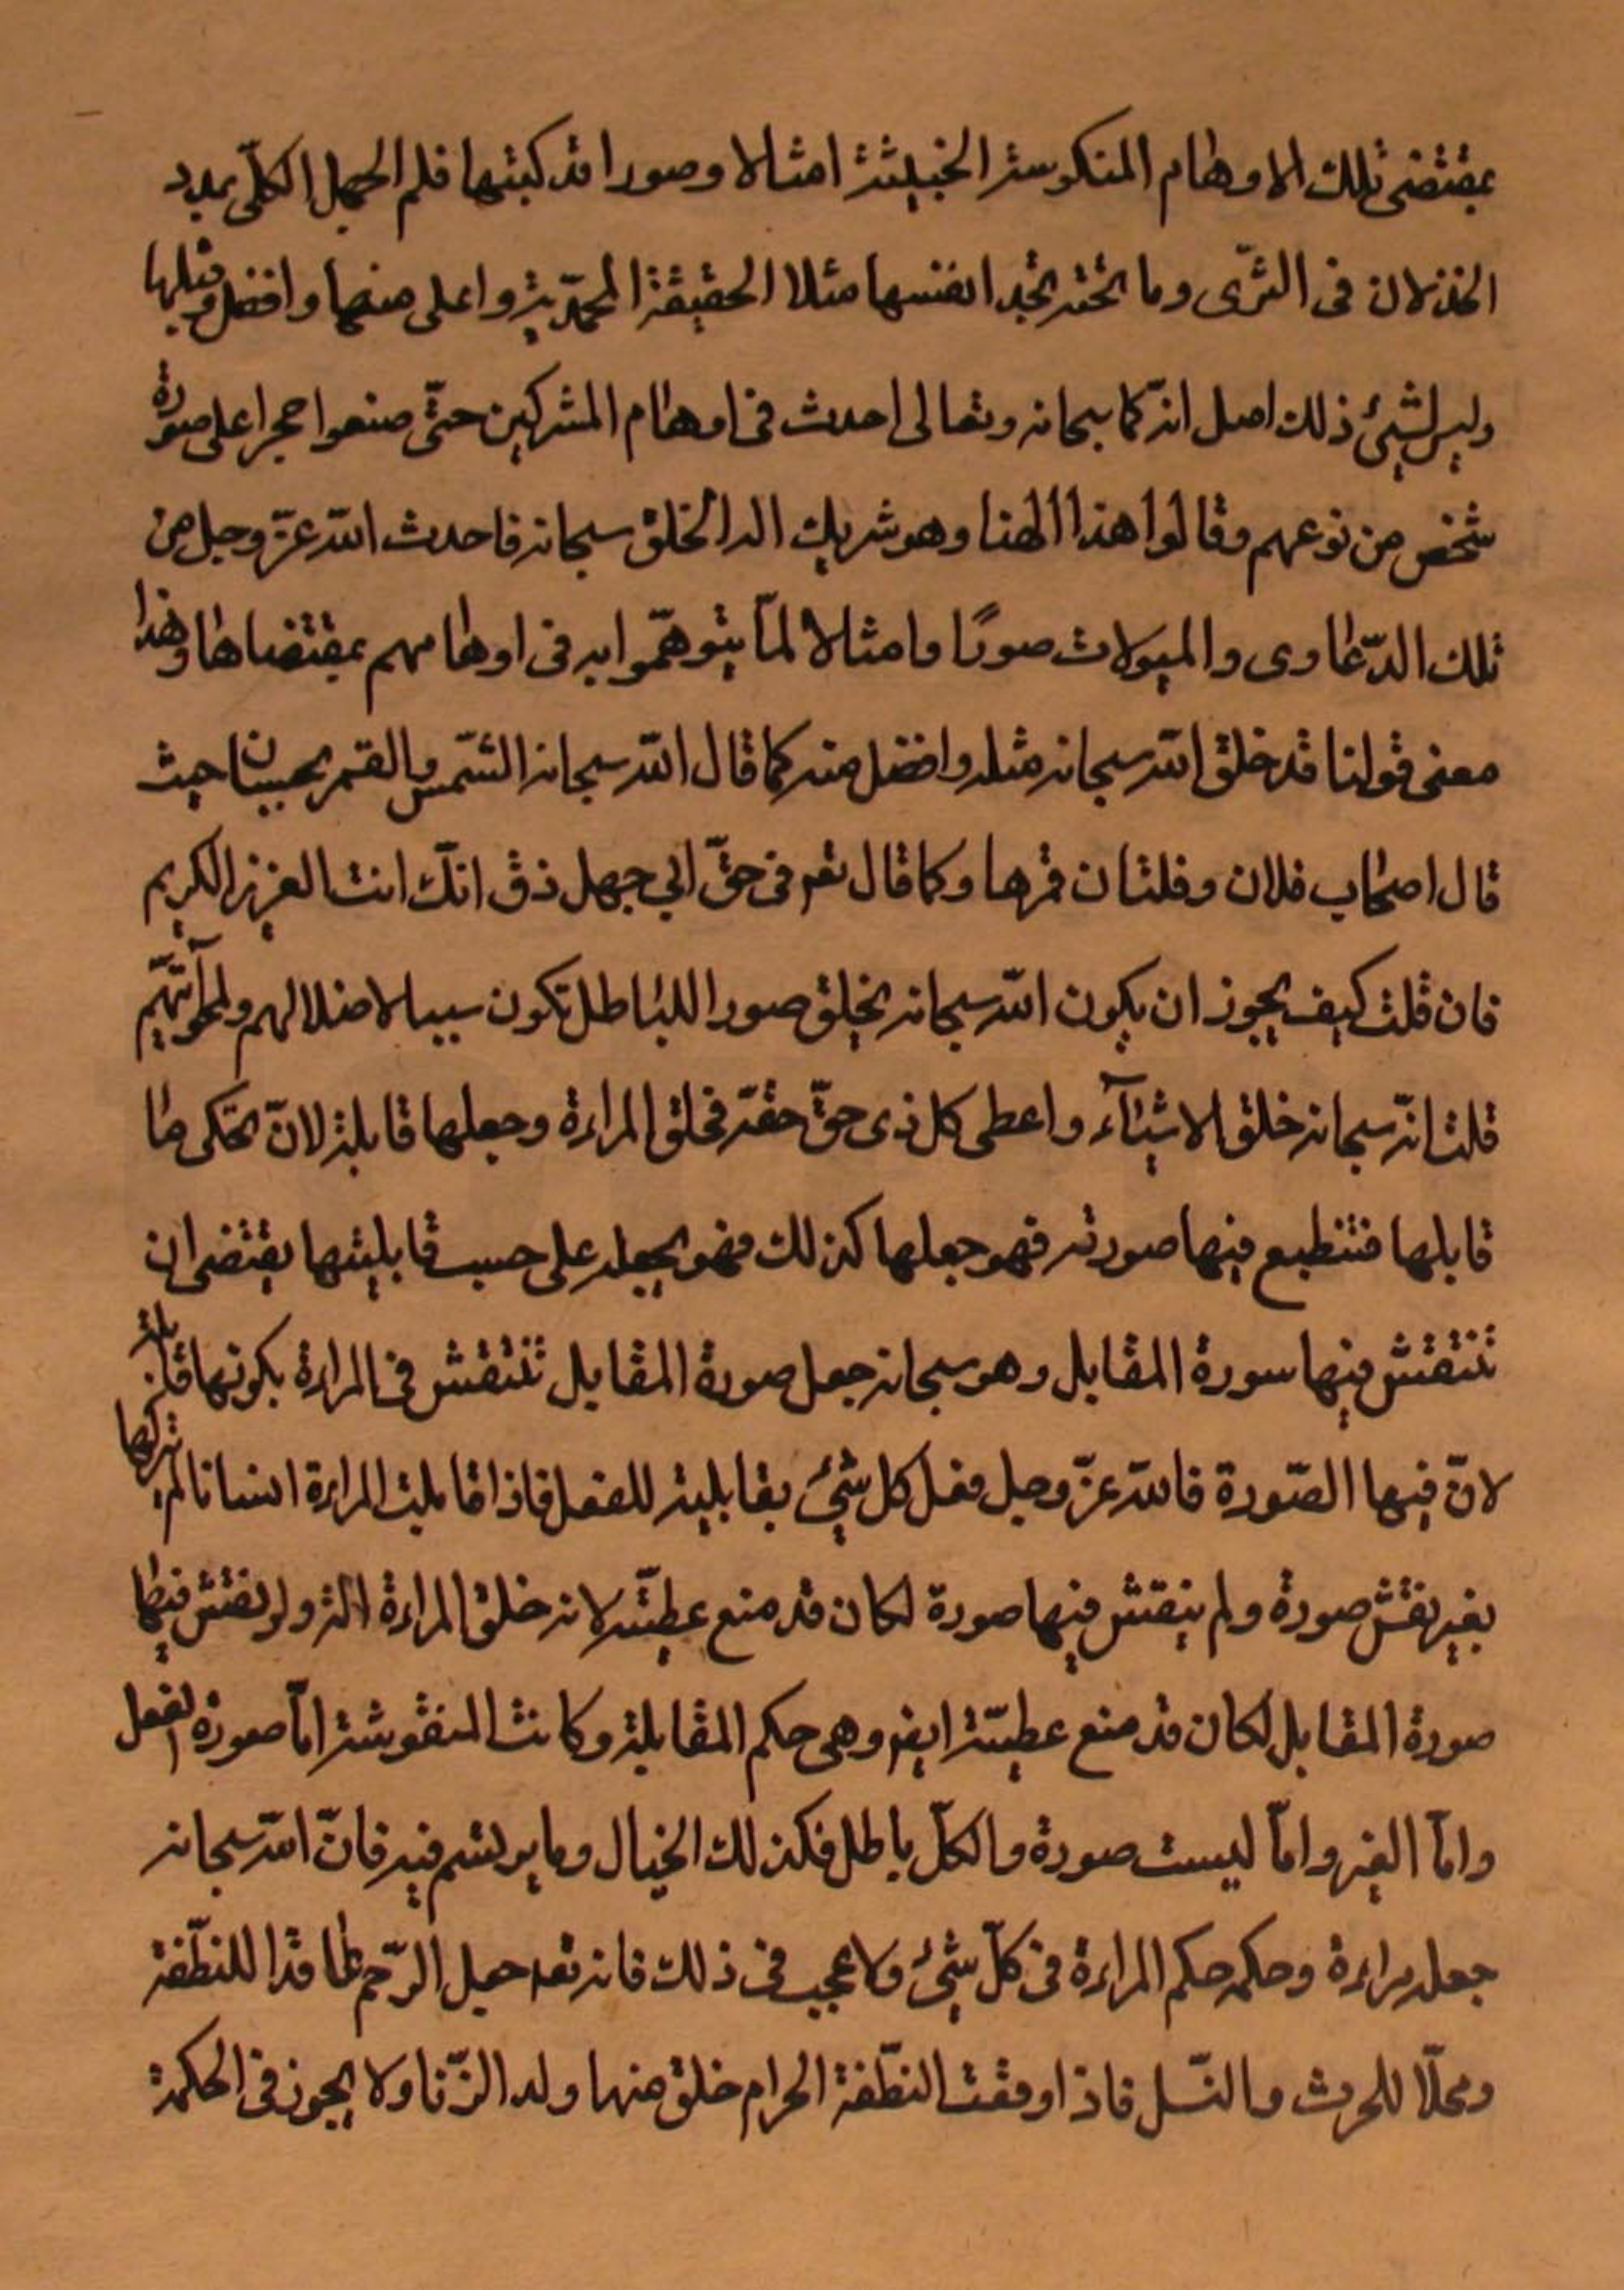 بمقتضى تلك الاوهام المنكوسة الخبيثة امثالا وصورا قد كتبتها قلم الجهل الكلّى بمدد
الخذلان فى الثّرى وما تحته تجد انفسها مثلا الحقيقة المحمّديّة واعلى منها وافضل وقبلها
وليس لشیئ ذلك اصل انّه كما سبحانه وتعالى احدث فى اوهام المشركين حتّى صنعوا حجرا على صورة
شخص من نوعهم وقالوا هذا الهنا وهو شريك اله الخلق سبحانه فاحدث الله عزّ وجل من
تلك الدّعاوى والميولات صورًا وامثالا لمّا يتوهّموا به فى اوهامهم بمقتضاها وهذا
معنى قولنا قد خلق الله سبحانه مثله وافضل منه كما قال الله سبحانه الشّمس والقمر بحسبان حيث
قال اصحاب فلان وفلتان قمرها وكما قال تعم فى حقّ ابي جهل ذق انّك انت العزيز الكريم
فان قلت كيف يجوز ان يكون الله سبحانه يخلق صورا للباطل تكون سببا لاضلالهم
قلت انّه سبحانه خلق الاشيآء واعطى كل ذى حقّ حقّه فخلق المراءة وجعلها قابلة لانّ تحكى ما
قابلها فتنطبع فيها صورته فهو جعلها كذلك فهو بجعله على حسب قابليتها يقتضى ان
تنتقش فيها سورة المقابل وهو سبحانه جعل صورة المقابل تنتقش فى المراءة بكونها قابلة
لانّ فيها الصّورة فالله عزّ وجل فعل كل شیئ بقابليته للفعل فاذا قابلت المراءة انسانا لم يتركها
بغير نقش صورة ولم ينقش فيها صورة لكان قد منع عطيّته لانه خلق المراءة الة ولو نقش فيها
صورة المقابل لكان قد منع عطيّته ايضا وهى حكم المقابلة وكانت المنقوشة امّا صورة الفعل
وامّا الغير وامّا ليست صورة والكلّ باطل فكذلك الخيال وما يرتسم فيه فانّ الله سبحانه
جعله مراءة وحكمه حكم المراءة فى كلّ شیئ ولا عجب فى ذلك فانه تعه جعل الرّحم عاقدا للنطّفة
ومحلّا للحرث والنّسل فاذا وقعت النطّفة الحرام خلق منها ولد الزّنا ولا يجوز فى الحكمة